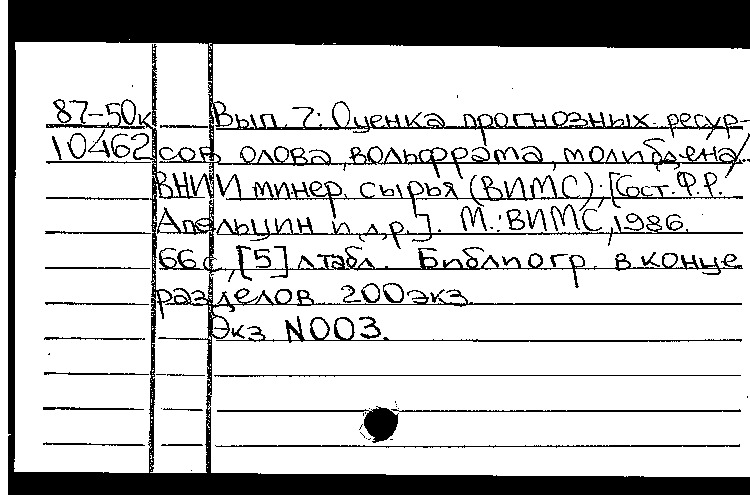 87-50к Вып. 7: Оценка прогнозных ресур-
10462 сов олова, вольфрама, молибдена/
ВНИИ минер. сырья (ВИМС); [Сост. Ф.Р.
Апельцин и др.]. М.: ВИМС, 1986.
66с., [5] л табл. Библиогр. в конце
разделов 200 экз.
Экз N003.